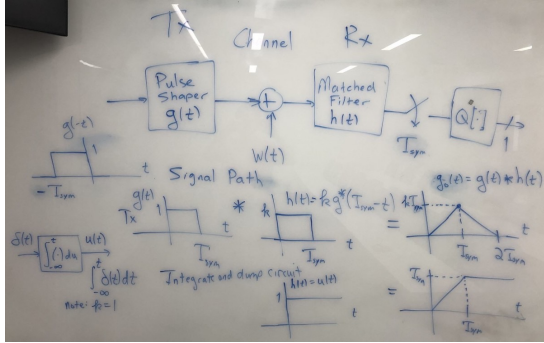 Tx Channel Rx
Pulse Shaper g(t)
+
Matched Filter h(t)
Tsym
Q[·]
1
W(t)
g(-t)
1
t
-Tsym
Signal Path
g0(t) = g(t) * h(t)
Tx
g(t)
1
t
Tsym
*
h(t) = k g*(Tsym-t)
k
t
Tsym
=
kTsym
t
Tsym
2Tsym
δ(t)
∫_{-∞}^{t} (·) du
u(t)
∫_{-∞}^{t} δ(t) dt
note: k=1
Integrate and dump circuit
h(t) = u(t)
1
t
=
Tsym
t
Tsym